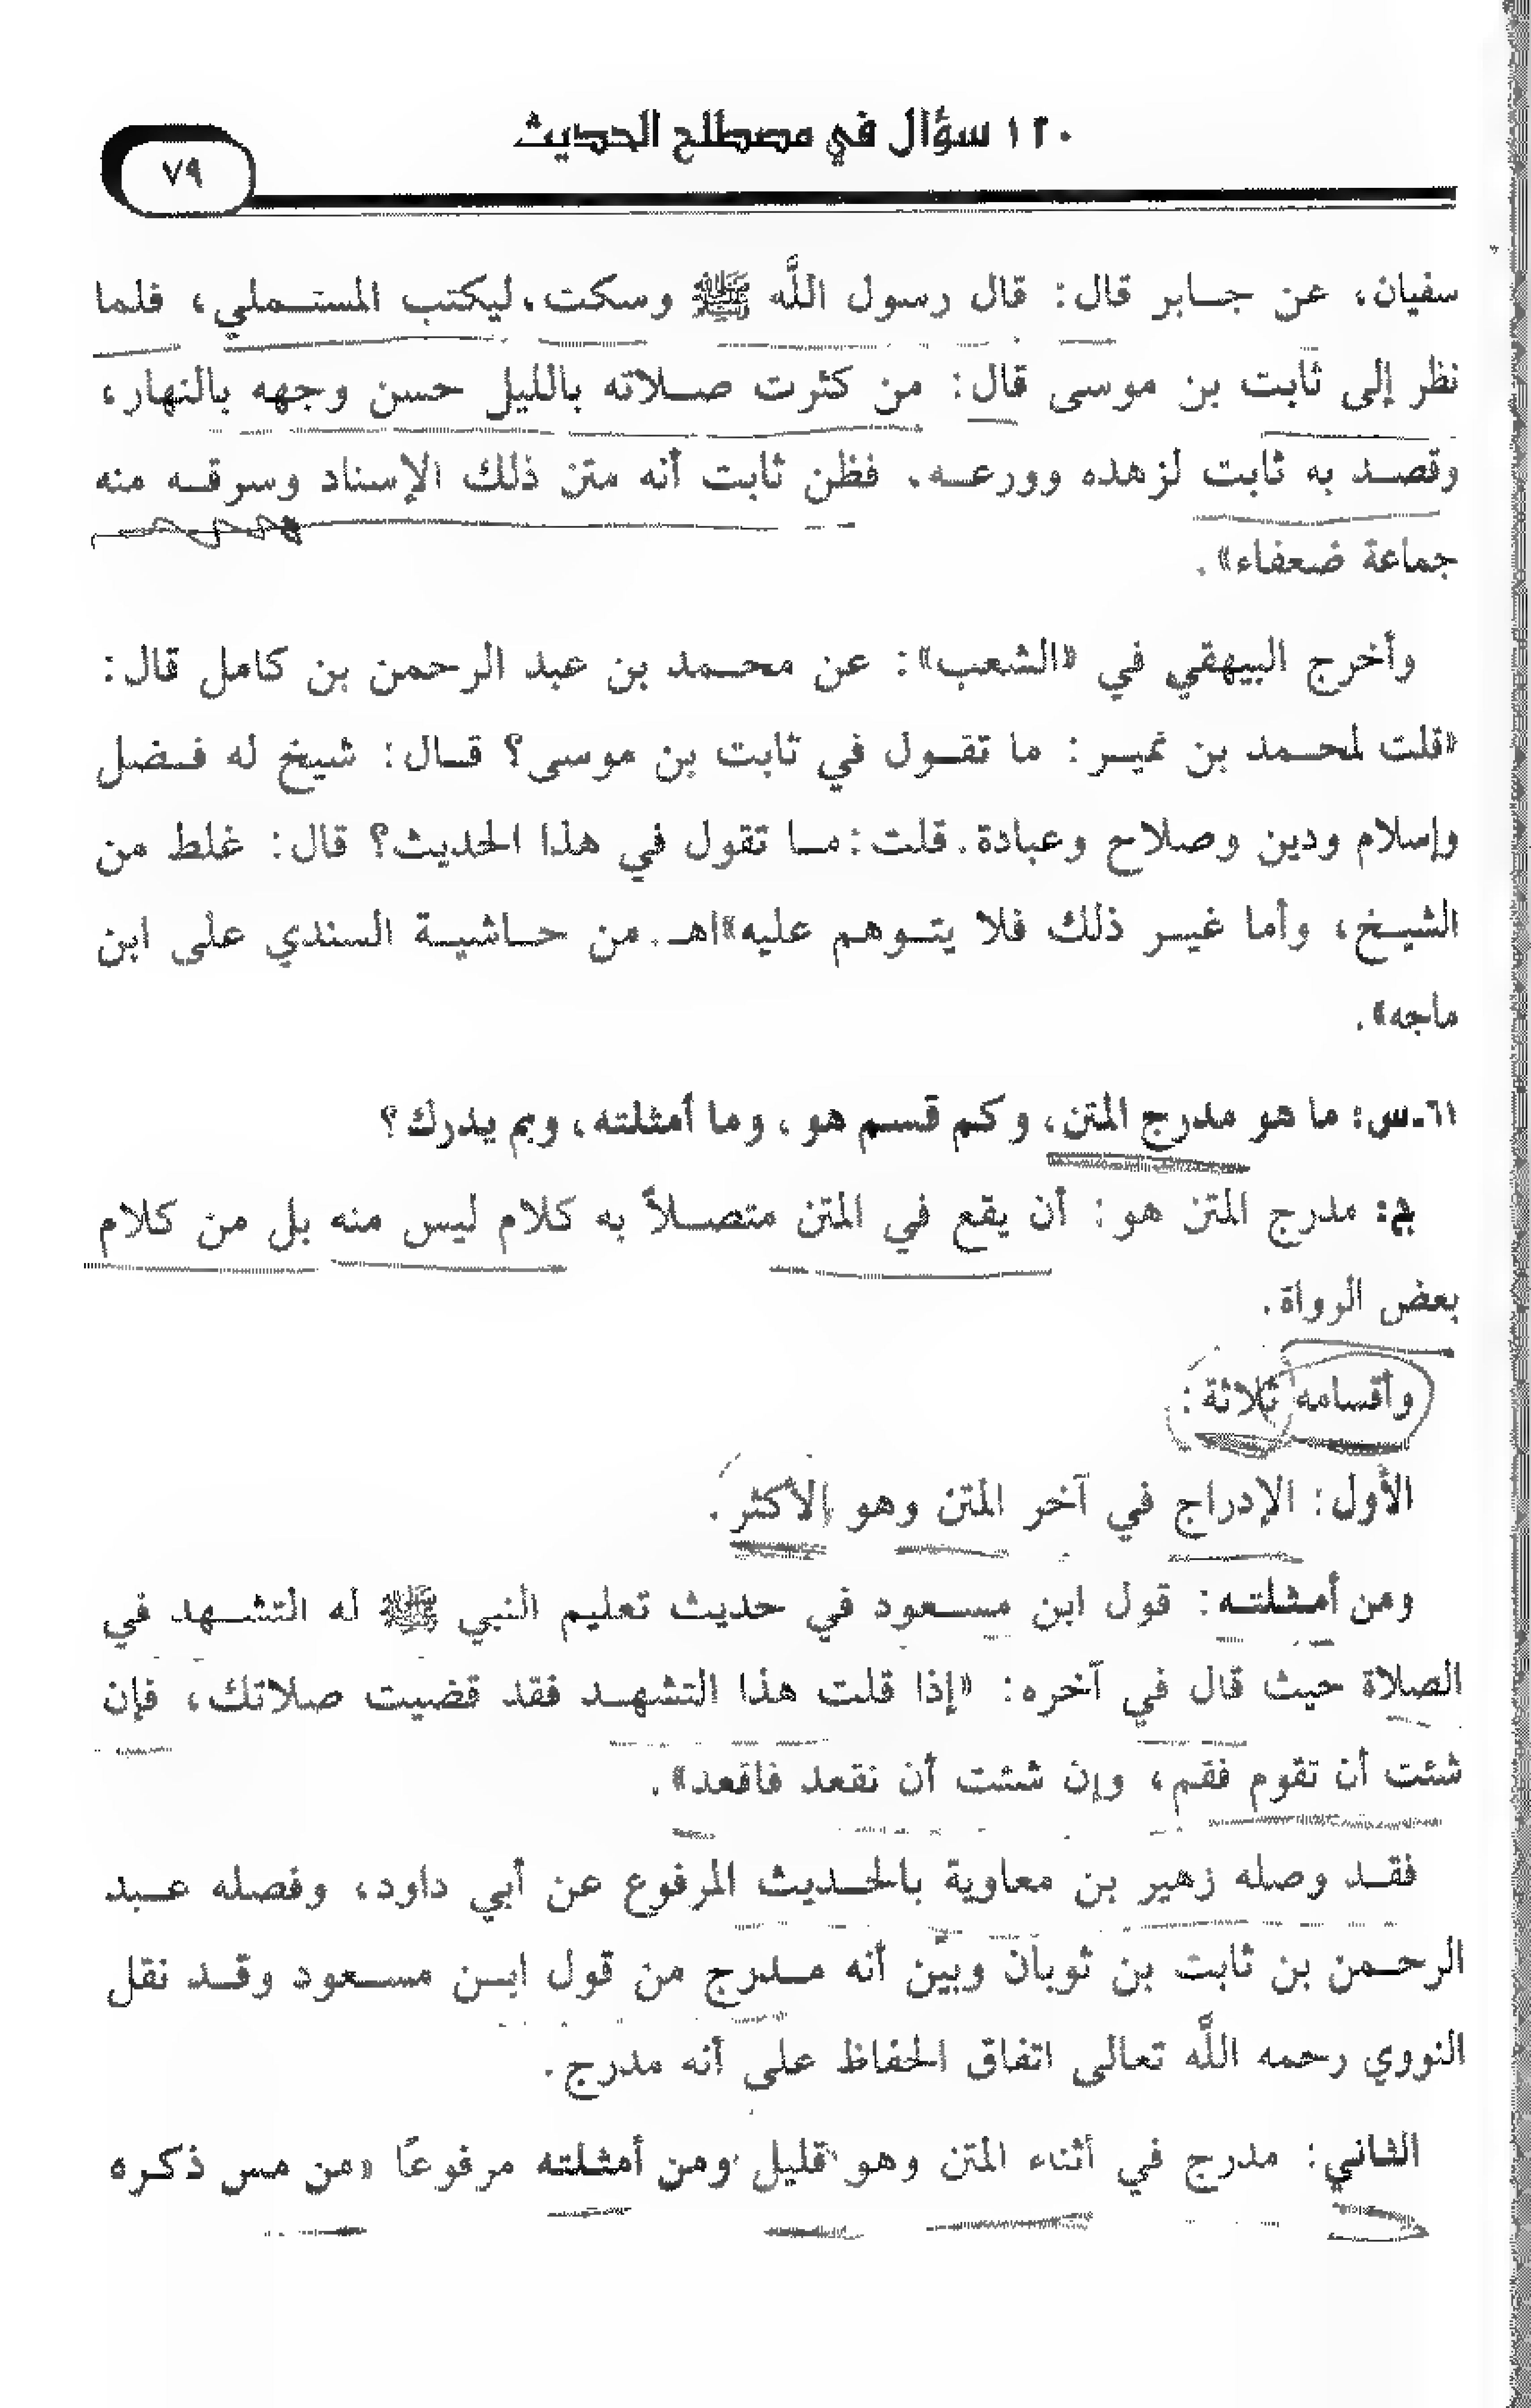 ١٢٠ سؤال في مصطلح الحديث
٧٩
سفيان، عن جابر قال: قال رسول اللَّه ﷺ وسكت. ليكتب المستملي، فلما
نظر إلى ثابت بن موسى قال: من كثرت صلاته بالليل حسن وجهه بالنهار،
وقصد به ثابت لزهده وورعه. فظن ثابت أنه متن ذلك الإسناد وسرقه منه
جماعة ضعفاء».
وأخرج البيهقي في «الشعب»: عن محمد بن عبد الرحمن بن كامل قال:
«قلت لمحمد بن نمير: ما تقول في ثابت بن موسى؟ قال: شيخ له فضل
وإسلام ودين وصلاح وعبادة. قلت: ما تقول في هذا الحديث؟ قال: غلط من
الشيخ، وأما غير ذلك فلا يتوهم عليه» اهـ. من حاشية السندي على ابن
ماجه».
٦١ـ س: ما هو مدرج المتن، وكم قسم هو، وما أمثلته، وبم يدرك؟
ج: مدرج المتن هو: أن يقع في المتن متصلاً به كلام ليس منه بل من كلام
بعض الرواة.
وأقسامه ثلاثة:
الأول: الإدراج في آخر المتن وهو الأكثر.
ومن أمثلته: قول ابن مسعود في حديث تعليم النبي ﷺ له التشهد في
الصلاة حيث قال في آخره: «إذا قلت هذا التشهد فقد قضيت صلاتك، فإن
شئت أن تقوم فقم، وإن شئت أن تقعد فاقعد».
فقد وصله زهير بن معاوية بالحديث المرفوع عن أبي داود، وفصله عبد
الرحمن بن ثابت بن ثوبان وبيَّن أنه مدرج من قول ابن مسعود وقد نقل
النووي رحمه اللَّه تعالى اتفاق الحفاظ على أنه مدرج.
الثاني: مدرج في أثناء المتن وهو قليل ومن أمثلته مرفوعًا «من مس ذكره